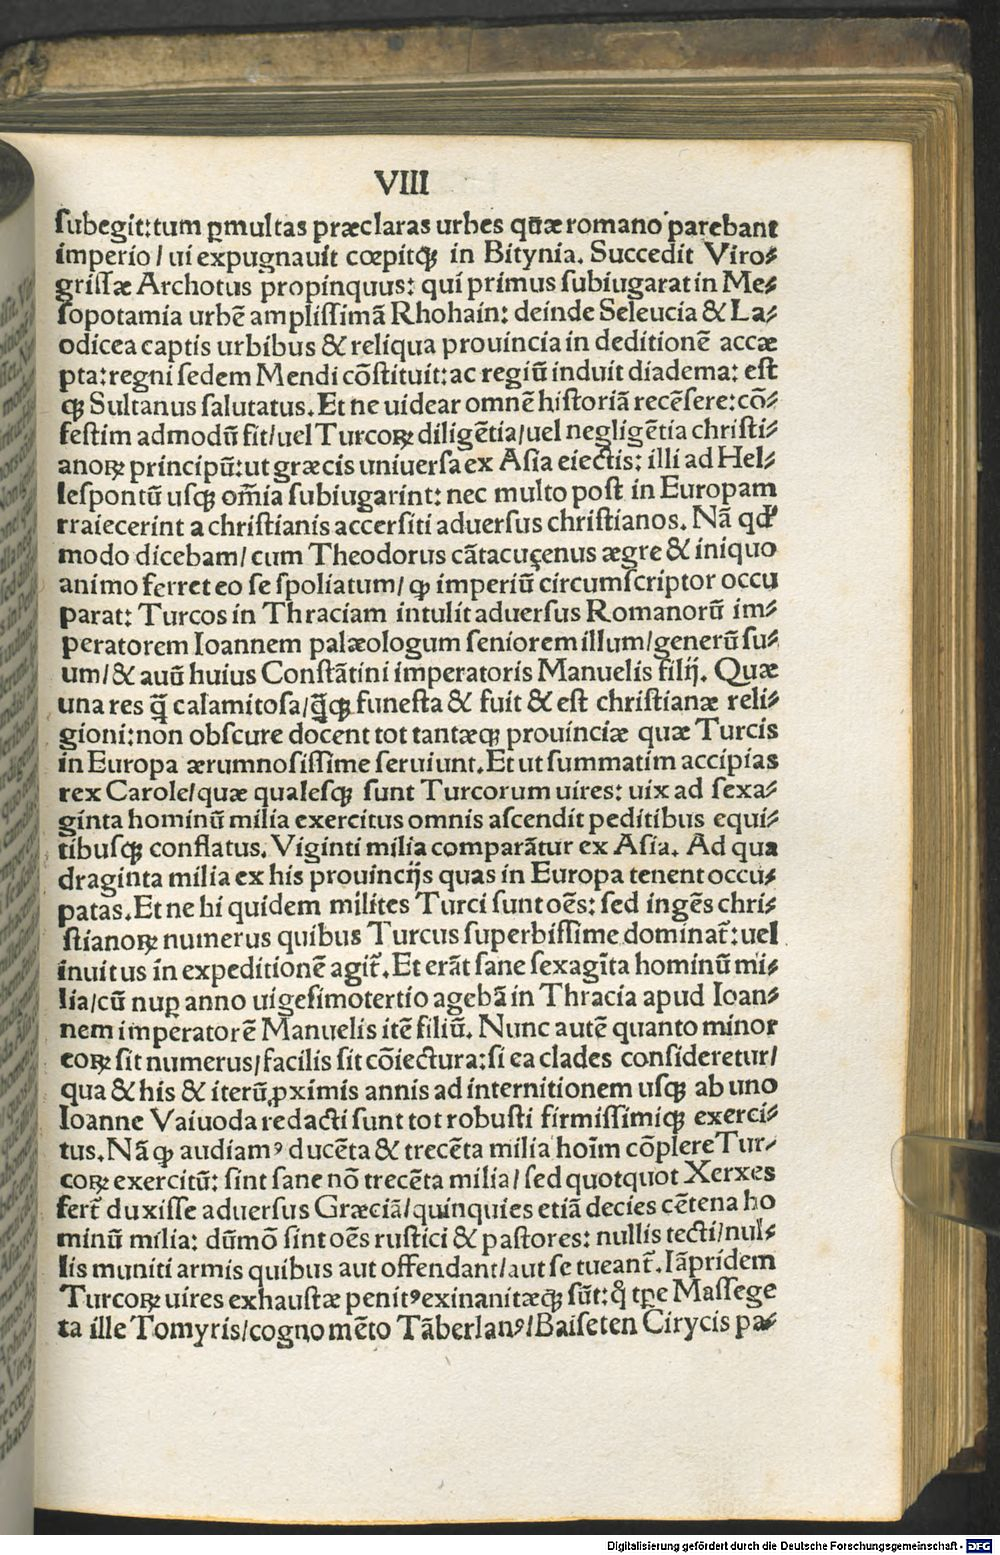 VIII
ſubegit:tum ꝑmultas præclaras urbes quæ romano parebant
imperio / ui expugnauit cœpitqꝫ in Bitynia. Succedit Viro⸗
griſſæ Archotus propinquus: qui primus ſubiugarat in Me⸗
ſopotamia urbē ampliſſimā Rhohain: deinde Seleucia & La⸗
odicea captis urbibus & reliqua prouincia in deditionē accæ
pta:regni ſedem Mendi cōſtituit:ac regiū induit diadema: eſt
qꝫ Sultanus ſalutatus. Et ne uidear omnē hiſtoriā recēſere:cō⸗
feſtim admodū fit/uel Turcoꝝ diligētia/uel negligētia chriſti⸗
anoꝝ principū:ut græcis uniuerſa ex Aſia eiectis: illi ad Hel⸗
leſpontū uſqꝫ om̄ia ſubiugarint: nec multo poſt in Europam
rraiecerint a chriſtianis accerſiti aduerſus chriſtianos. Nā qd̓
modo dicebam/ cum Theodorus cātacuçenus ægre & iniquo
animo ferret eo ſe ſpoliatum/ ꝙ imperiū circumſcriptor occu
parat: Turcos in Thraciam intulit aduerſus Romanorū im⸗
peratorem Ioannem palæologum ſeniorem illum/generū ſu⸗
um/& auū huius Conſtātini imperatoris Manuelis filij. Quæ
una res q̄̄ calamitoſa/q̄̄qꝫ funeſta & fuit & eſt chriſtianæ reli⸗
gioni:non obſcure docent tot tantæqꝫ prouinciæ quæ Turcis
in Europa ærumnoſiſſime ſeruiunt. Et ut ſummatim accipias
rex Carole/quæ qualeſqꝫ ſunt Turcorum uires: uix ad ſexa⸗
ginta hominū milia exercitus omnis aſcendit peditibus equi⸗
tibuſqꝫ conflatus. Viginti milia comparātur ex Aſia. Ad qua
draginta milia ex his prouincijs quas in Europa tenent occu⸗
patas. Et ne hi quidem milites Turci ſunt oēs: ſed ingēs chri⸗
ſtianoꝝ numerus quibus Turcus ſuperbiſſime dominat᷑: uel
inuitus in expeditionē agit᷑. Et erāt ſane ſexagīta hominū mi⸗
lia/cū nuꝑ anno uigeſimotertio agebā in Thracia apud Ioan⸗
nem imperatorē Manuelis itē filiū. Nunc autē quanto minor
eoꝝ ſit numerus/facilis ſit cōiectura:ſi ea clades conſideretur/
qua & his & iterū ꝓximis annis ad internitionem uſqꝫ ab uno
Ioanne Vaiuoda redacti ſunt tot robuſti firmiſſimiqꝫ exerci⸗
tus. Nā ꝙ audiamꝰ ducēta & trecēta milia hoīm cōplere Tur⸗
coꝝ exercitū: ſint ſane nō trecēta milia/ ſed quotquot Xerxes
fert᷑ duxiſſe aduerſus Græciā/quinquies etiā decies cētena ho
minū milia: dūmō ſint oēs ruſtici & paſtores: nullis tecti/nul⸗
lis muniti armis quibus aut offendant/aut ſe tueant᷑. Iāpridem
Turcoꝝ uires exhauſtæ penitꝰ exinanitæqꝫ sūt: q̊ tꝑe Maſſege
ta ille Tomyris/cogno mēto Tāberlanꝰ/Baiſeten Cirycis pa⸗
Digitalisierung gefördert durch die Deutsche Forschungsgemeinschaft - DFG